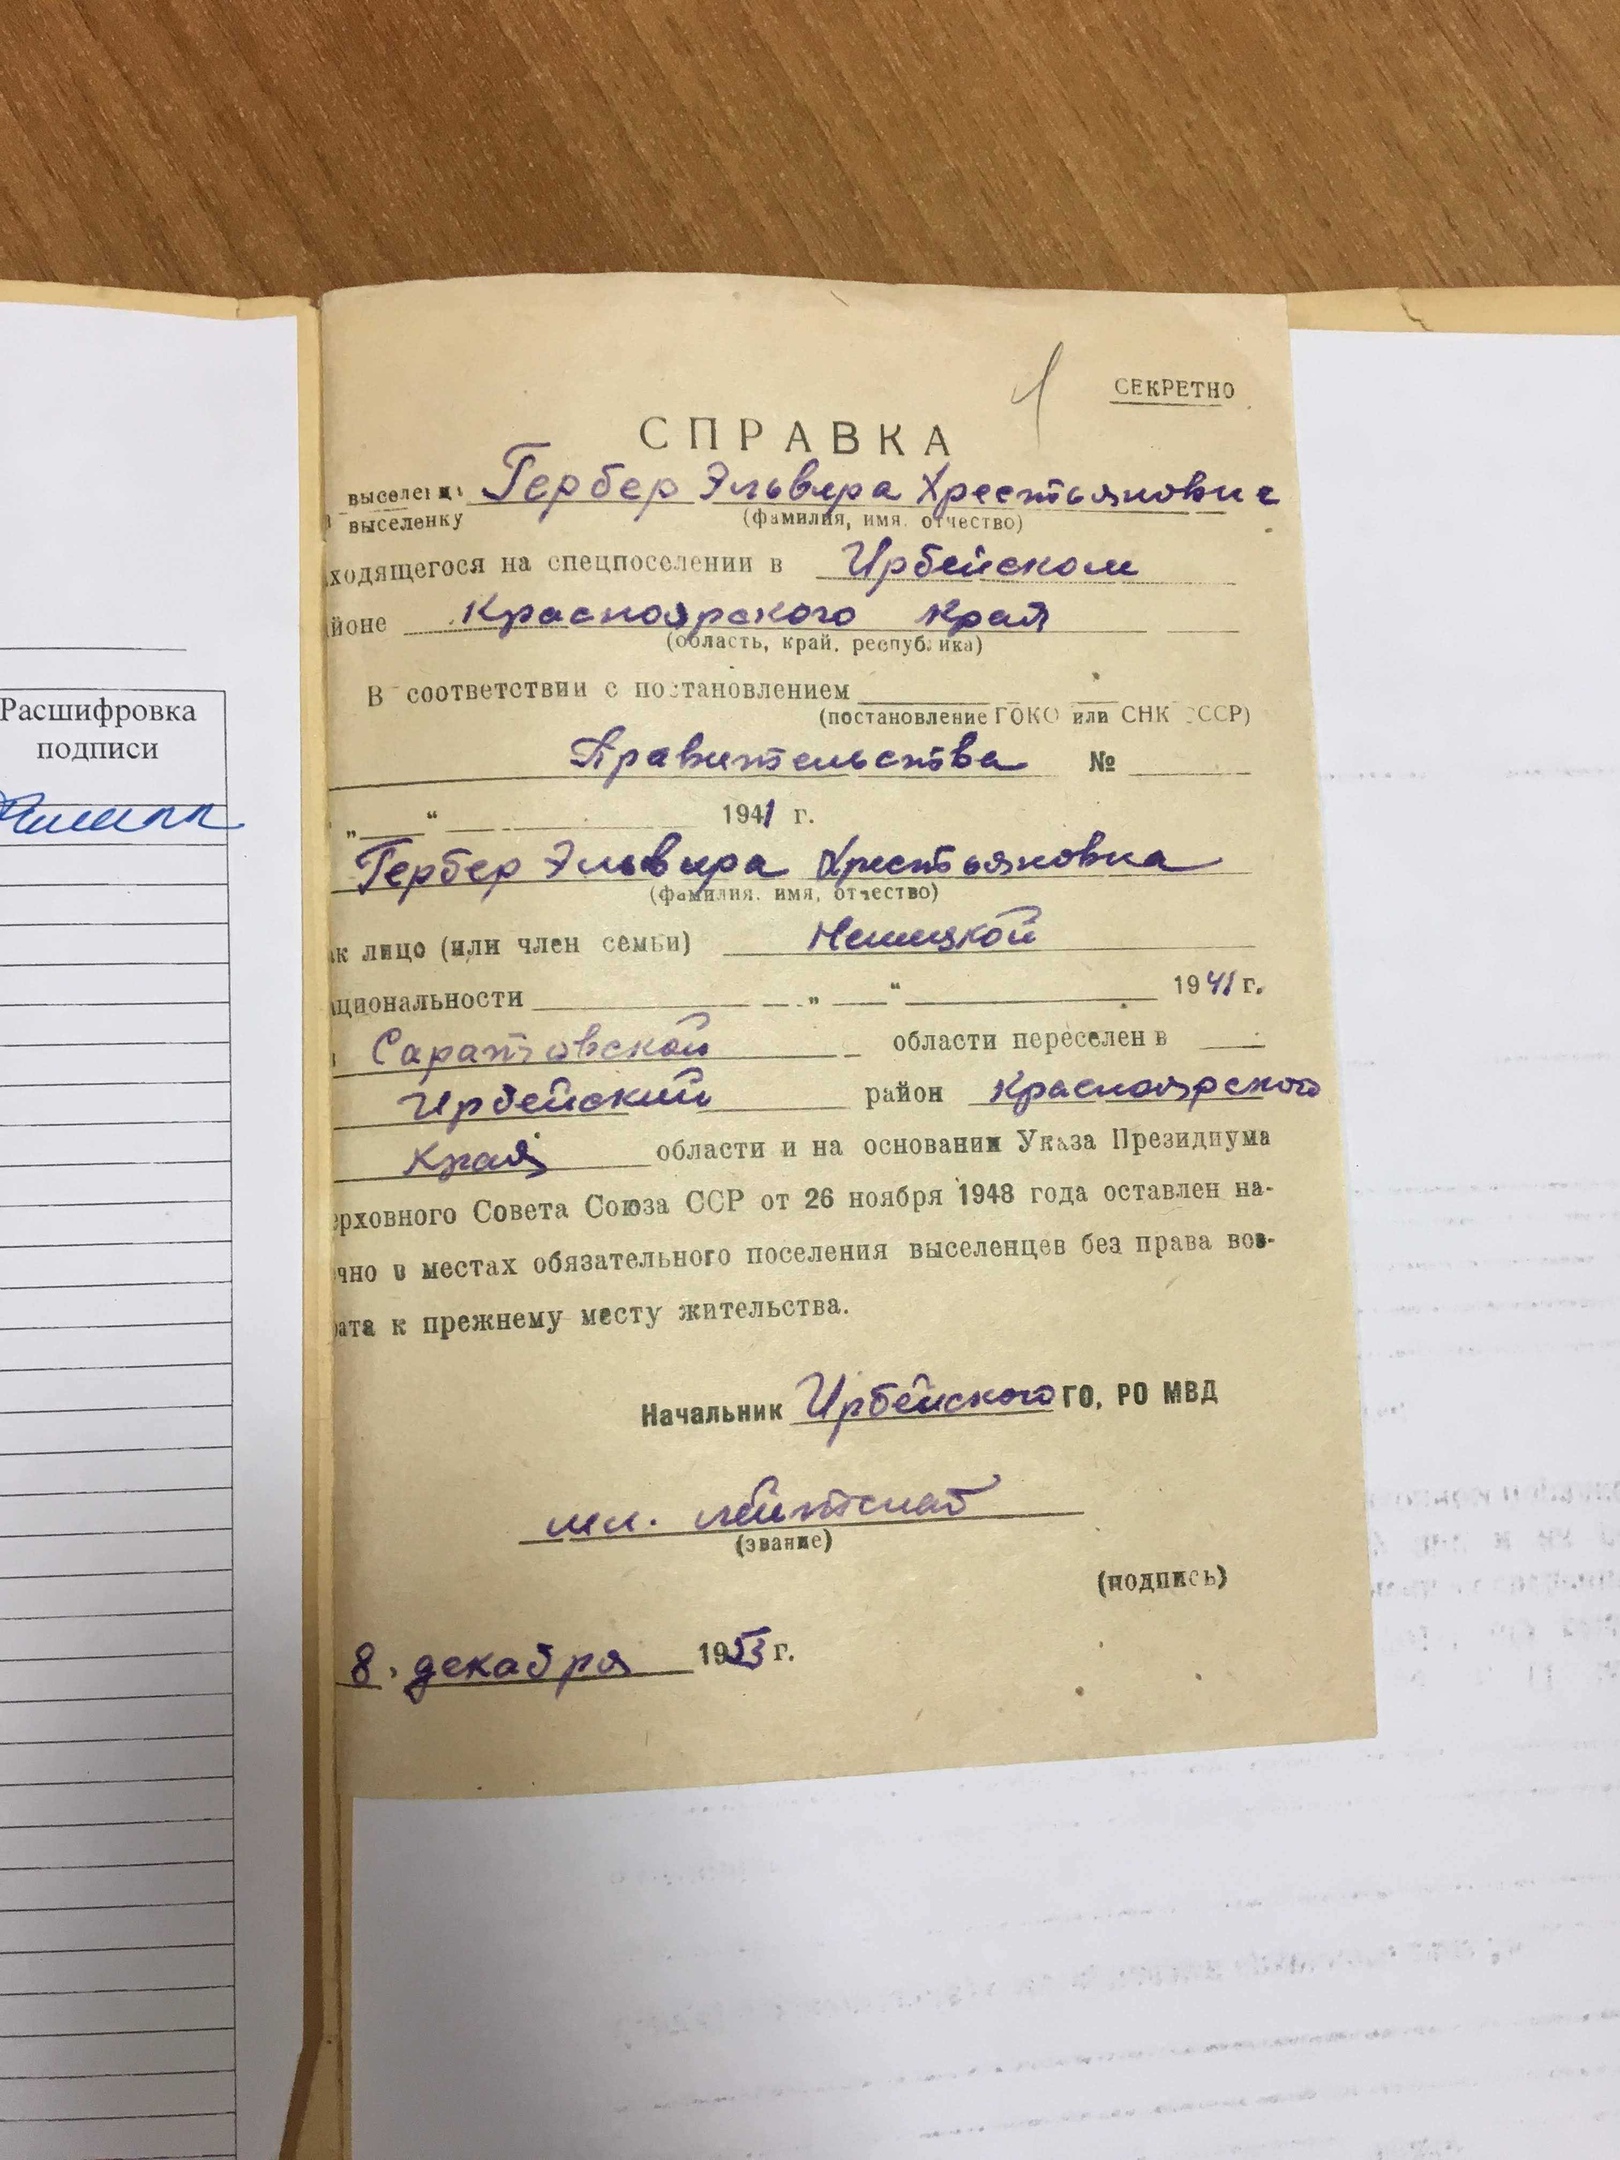 Расшифровка
подписи
СЕКРЕТНО
СПРАВКА
выселенц
Гербер Эльвира Хрестьяновне
выселенку
(фамилия, имя, отчество)
ходящегося на спецпоселении в Ирбейском
йоне Красноярского края
(область, край, республика)
В соответствии с постановлением
(постановление ГОКО или СНК СССР)
Правительства №
„ “ 1941 г.
Гербер Эльвира Хрестьяновна
(фамилия, имя, отчество)
ак лицо (или член семьи) Немецкой
циональности „ “ 1941 г.
Саратовской области переселен в
Ирбейский район Красноярского
Края области и на основании Указа Президиума
ерховного Совета Союза ССР от 26 ноября 1948 года оставлен на-
чно в местах обязательного поселения выселенцев без права воз-
рата к прежнему месту жительства.
Начальник Ирбейского ГО, РО МВД
мл. лейтенант
(звание)
(подпись)
8 декабря 1953 г.